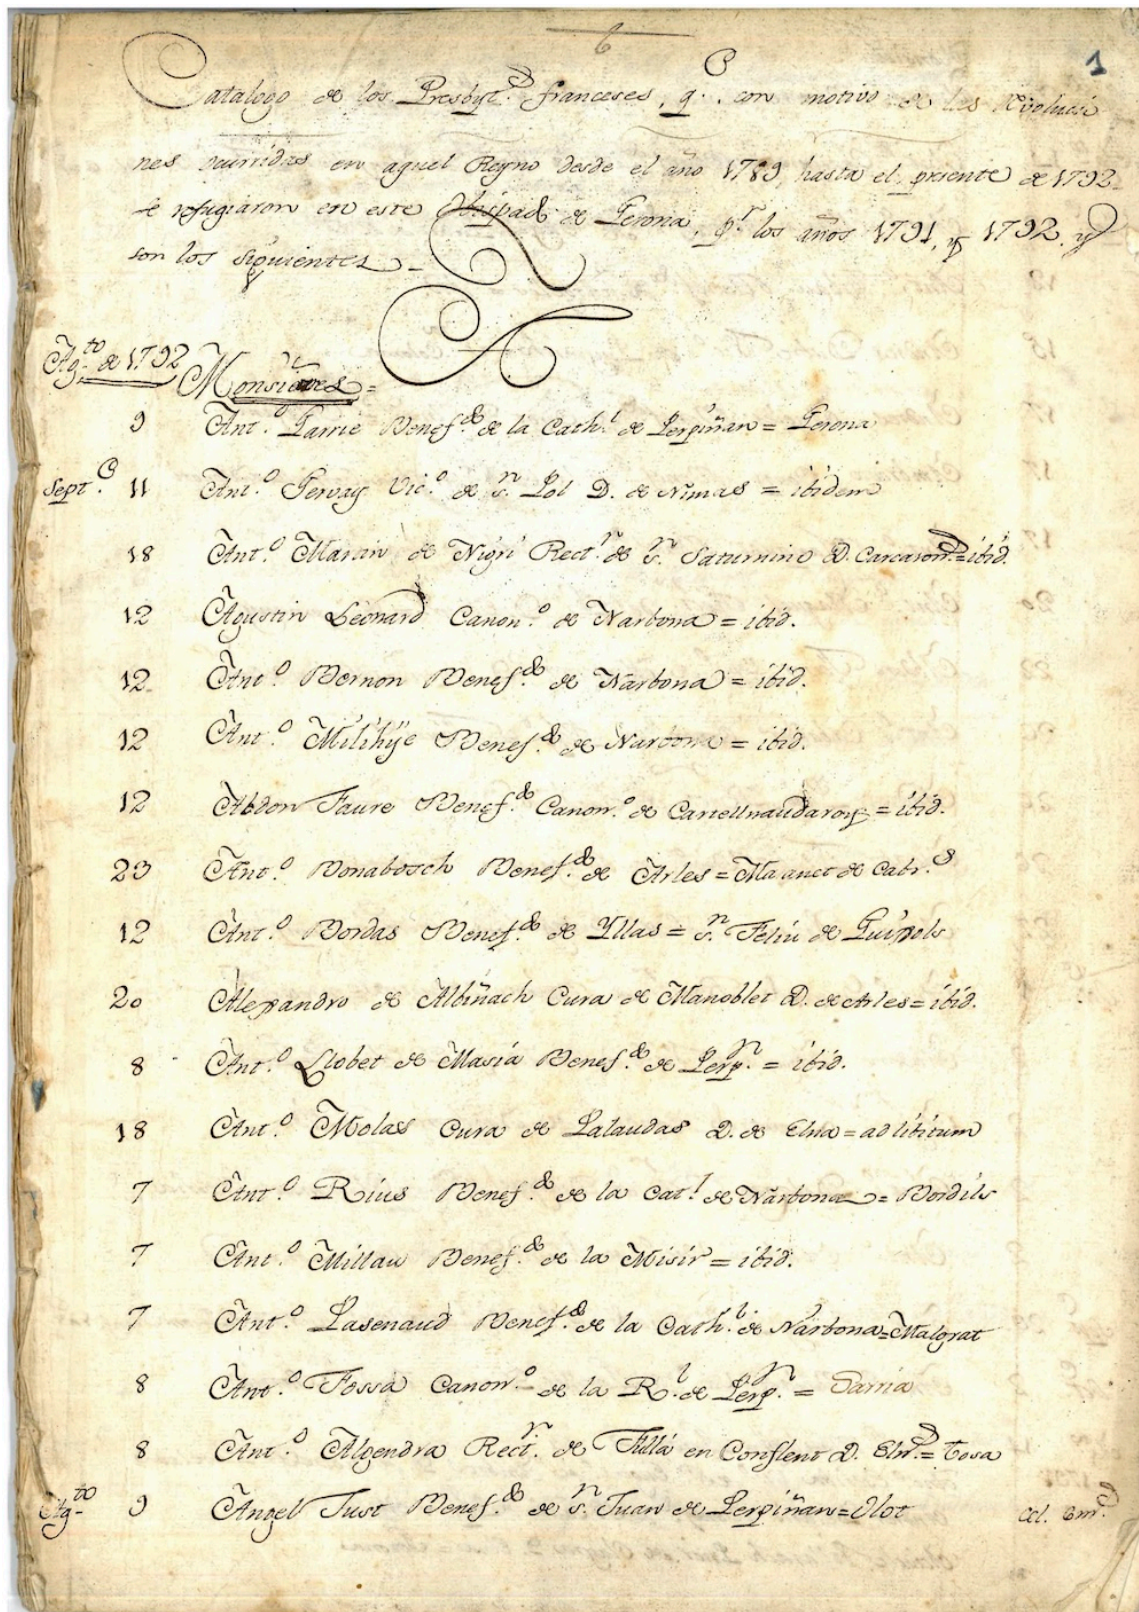 6
1
Catalogo de los Presbyt.s franceses, q.e con motivo de les Revolucio
nes ocurridas en aquel Reyno desde el año 1789, hasta el prisente de 1792
se refugiaron en este Obispado de Gerona, p.r los años 1791, y 1792, y
son los siguientes
Ag.to de 1792 Monsiures =
9 Ant.o Garrie Benef.do de la Cath.l de Perpiñan = Gerona
Sept.e 11 Ant.o Gervay Vic.o de S.n Pol D. de Nimas = ibidem
18 Ant.o Marin de Nigri Rect.r de S.n Saturnino D. Carcason.a = ibid.
12 Agustin Leonard Canon.o de Narbona = ibid.
12 Ant.o Bernon Benef.do de Narbona = ibid.
12 Ant.o Milihye Benef.do de Narbona = ibid.
12 Abdon Faure Benef.do Canon.o de Castellnaudaroy = ibid.
23 Ant.o Bonabosch Benef.do de Arles = Masanet de Cabr.s
12 Ant.o Bordas Benef.do de Yllas = S.n Feliu de Guixols
20 Alexandro de Albiñach Cura de Manoblet D. de Arles = ibid.
8 Ant.o Llobet de Masiá Benef.do de Perp.n = ibid.
18 Ant.o Molass Cura de Palaudas D. de Elna = ad libitum
7 Ant.o Rius Benef.do de la Cat.l de Narbona = Bordils
7 Ant.o Millau Benef.do de la Misir = ibid.
7 Ant.o Lasenaud Benef.do de la Cath.l de Narbona = Malgrat
8 Ant.o Fossa Canon.o de la R.l de Perp.n = Sarria
8 Ant.o Algendra Rect.r de Fulla en Conflent D. Eln.a = Tosa
Ag.to 9 Angel Just Benef.do de S.n Juan de Perpiñan = Olot